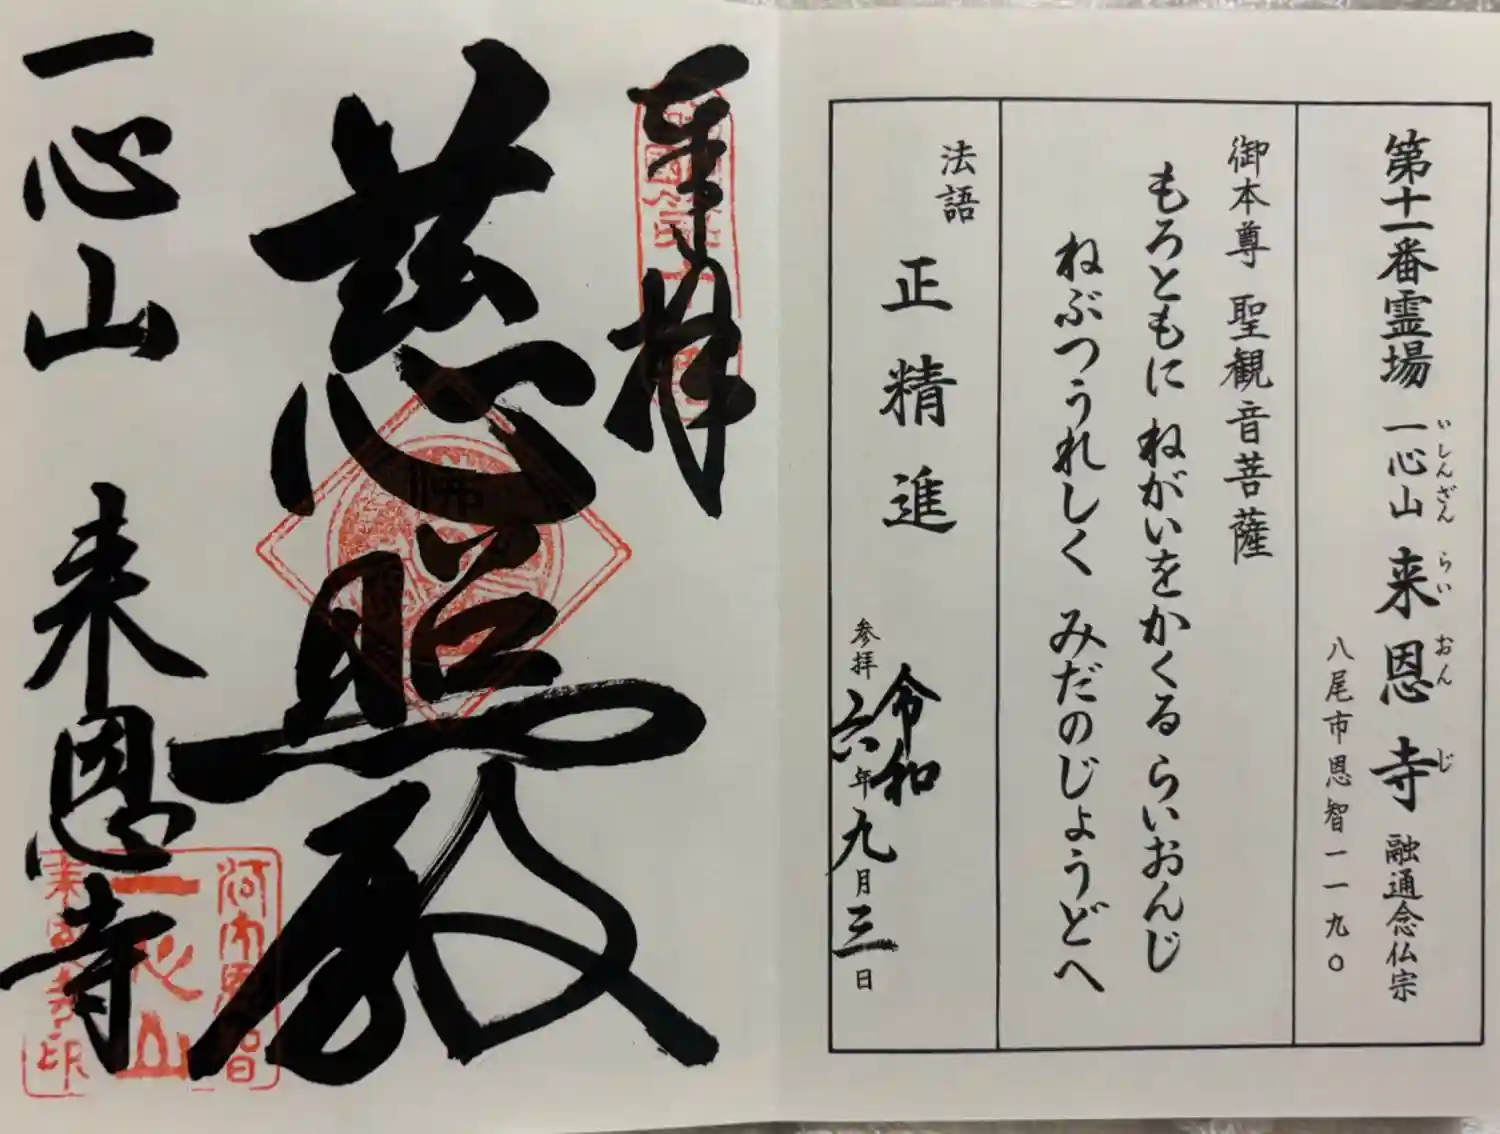 第十一番霊場 一心山 来恩寺 融通念仏宗
いしんざん らいおんじ
八尾市恩智一一九〇
御本尊 聖観音菩薩
もろともに ねがいをかくる らいおんじ
ねぶつうれしく みだのじょうどへ
法語
正精進
参拝 令和六年九月三日
奉拝
慈照殿
一心山 来恩寺
河内恩智
一心山
来恩寺印